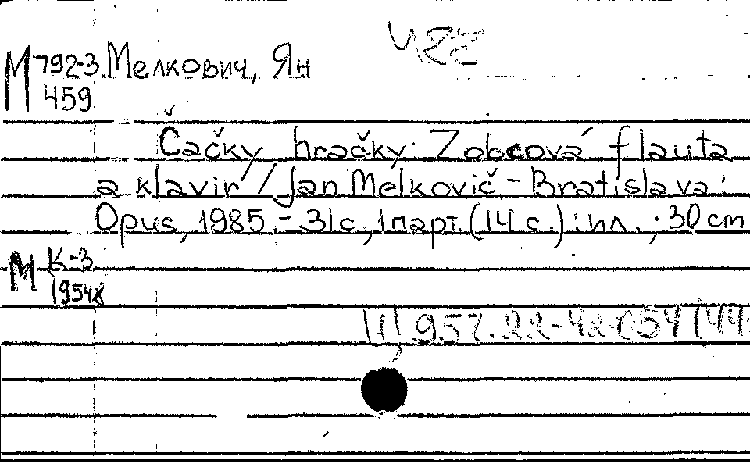 М 792-3 Мелкович, Ян
459
Čačky hračky. Zobcová flauta
a klavir / Jan Melkovič - Bratislava :
Opus, 1985. - 31 с., 1 парт. (14 с.) : ил. ; 30 cm
М К-3